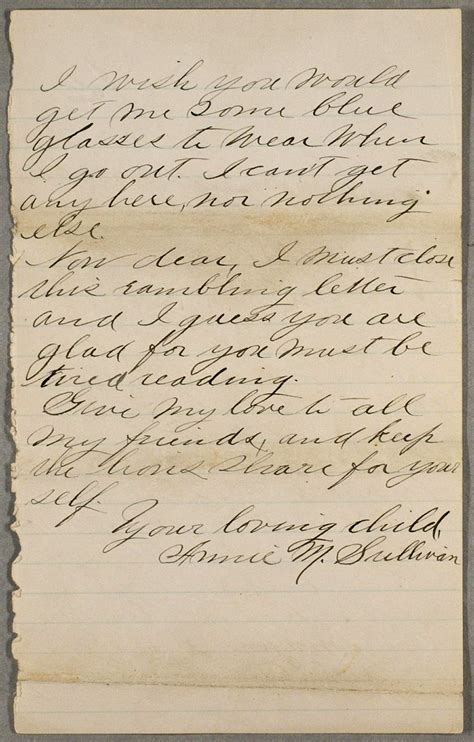 I wish you would
get me some blue
glasses to wear when
I go out. I can't get
any here, nor nothing
else.
Now dear, I must close
this rambling letter
and I guess you are
glad for you must be
tired reading.
Give my love to all
my friends, and keep
the lions share for your
self.
Your loving child,
Annie M. Sullivan